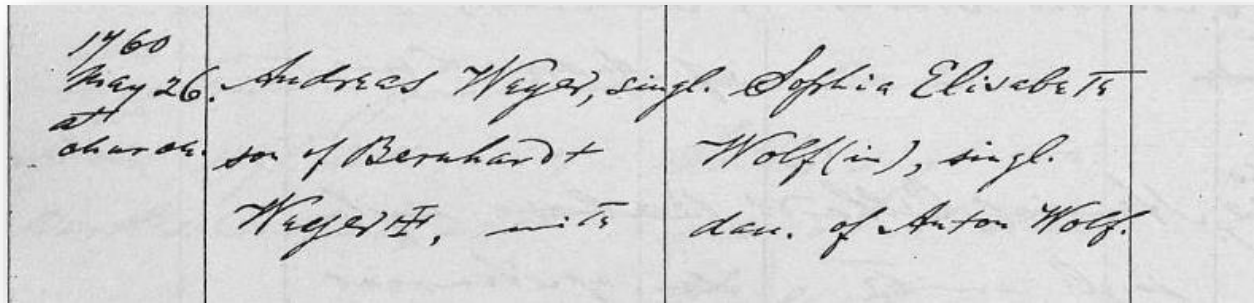 1760
May 26.
at
church.
Andreas Weyer, singl.
son of Bernhardt
Weyer, with
Sophia Elisabeth
Wolf(in), singl.
dau. of Anton Wolf.